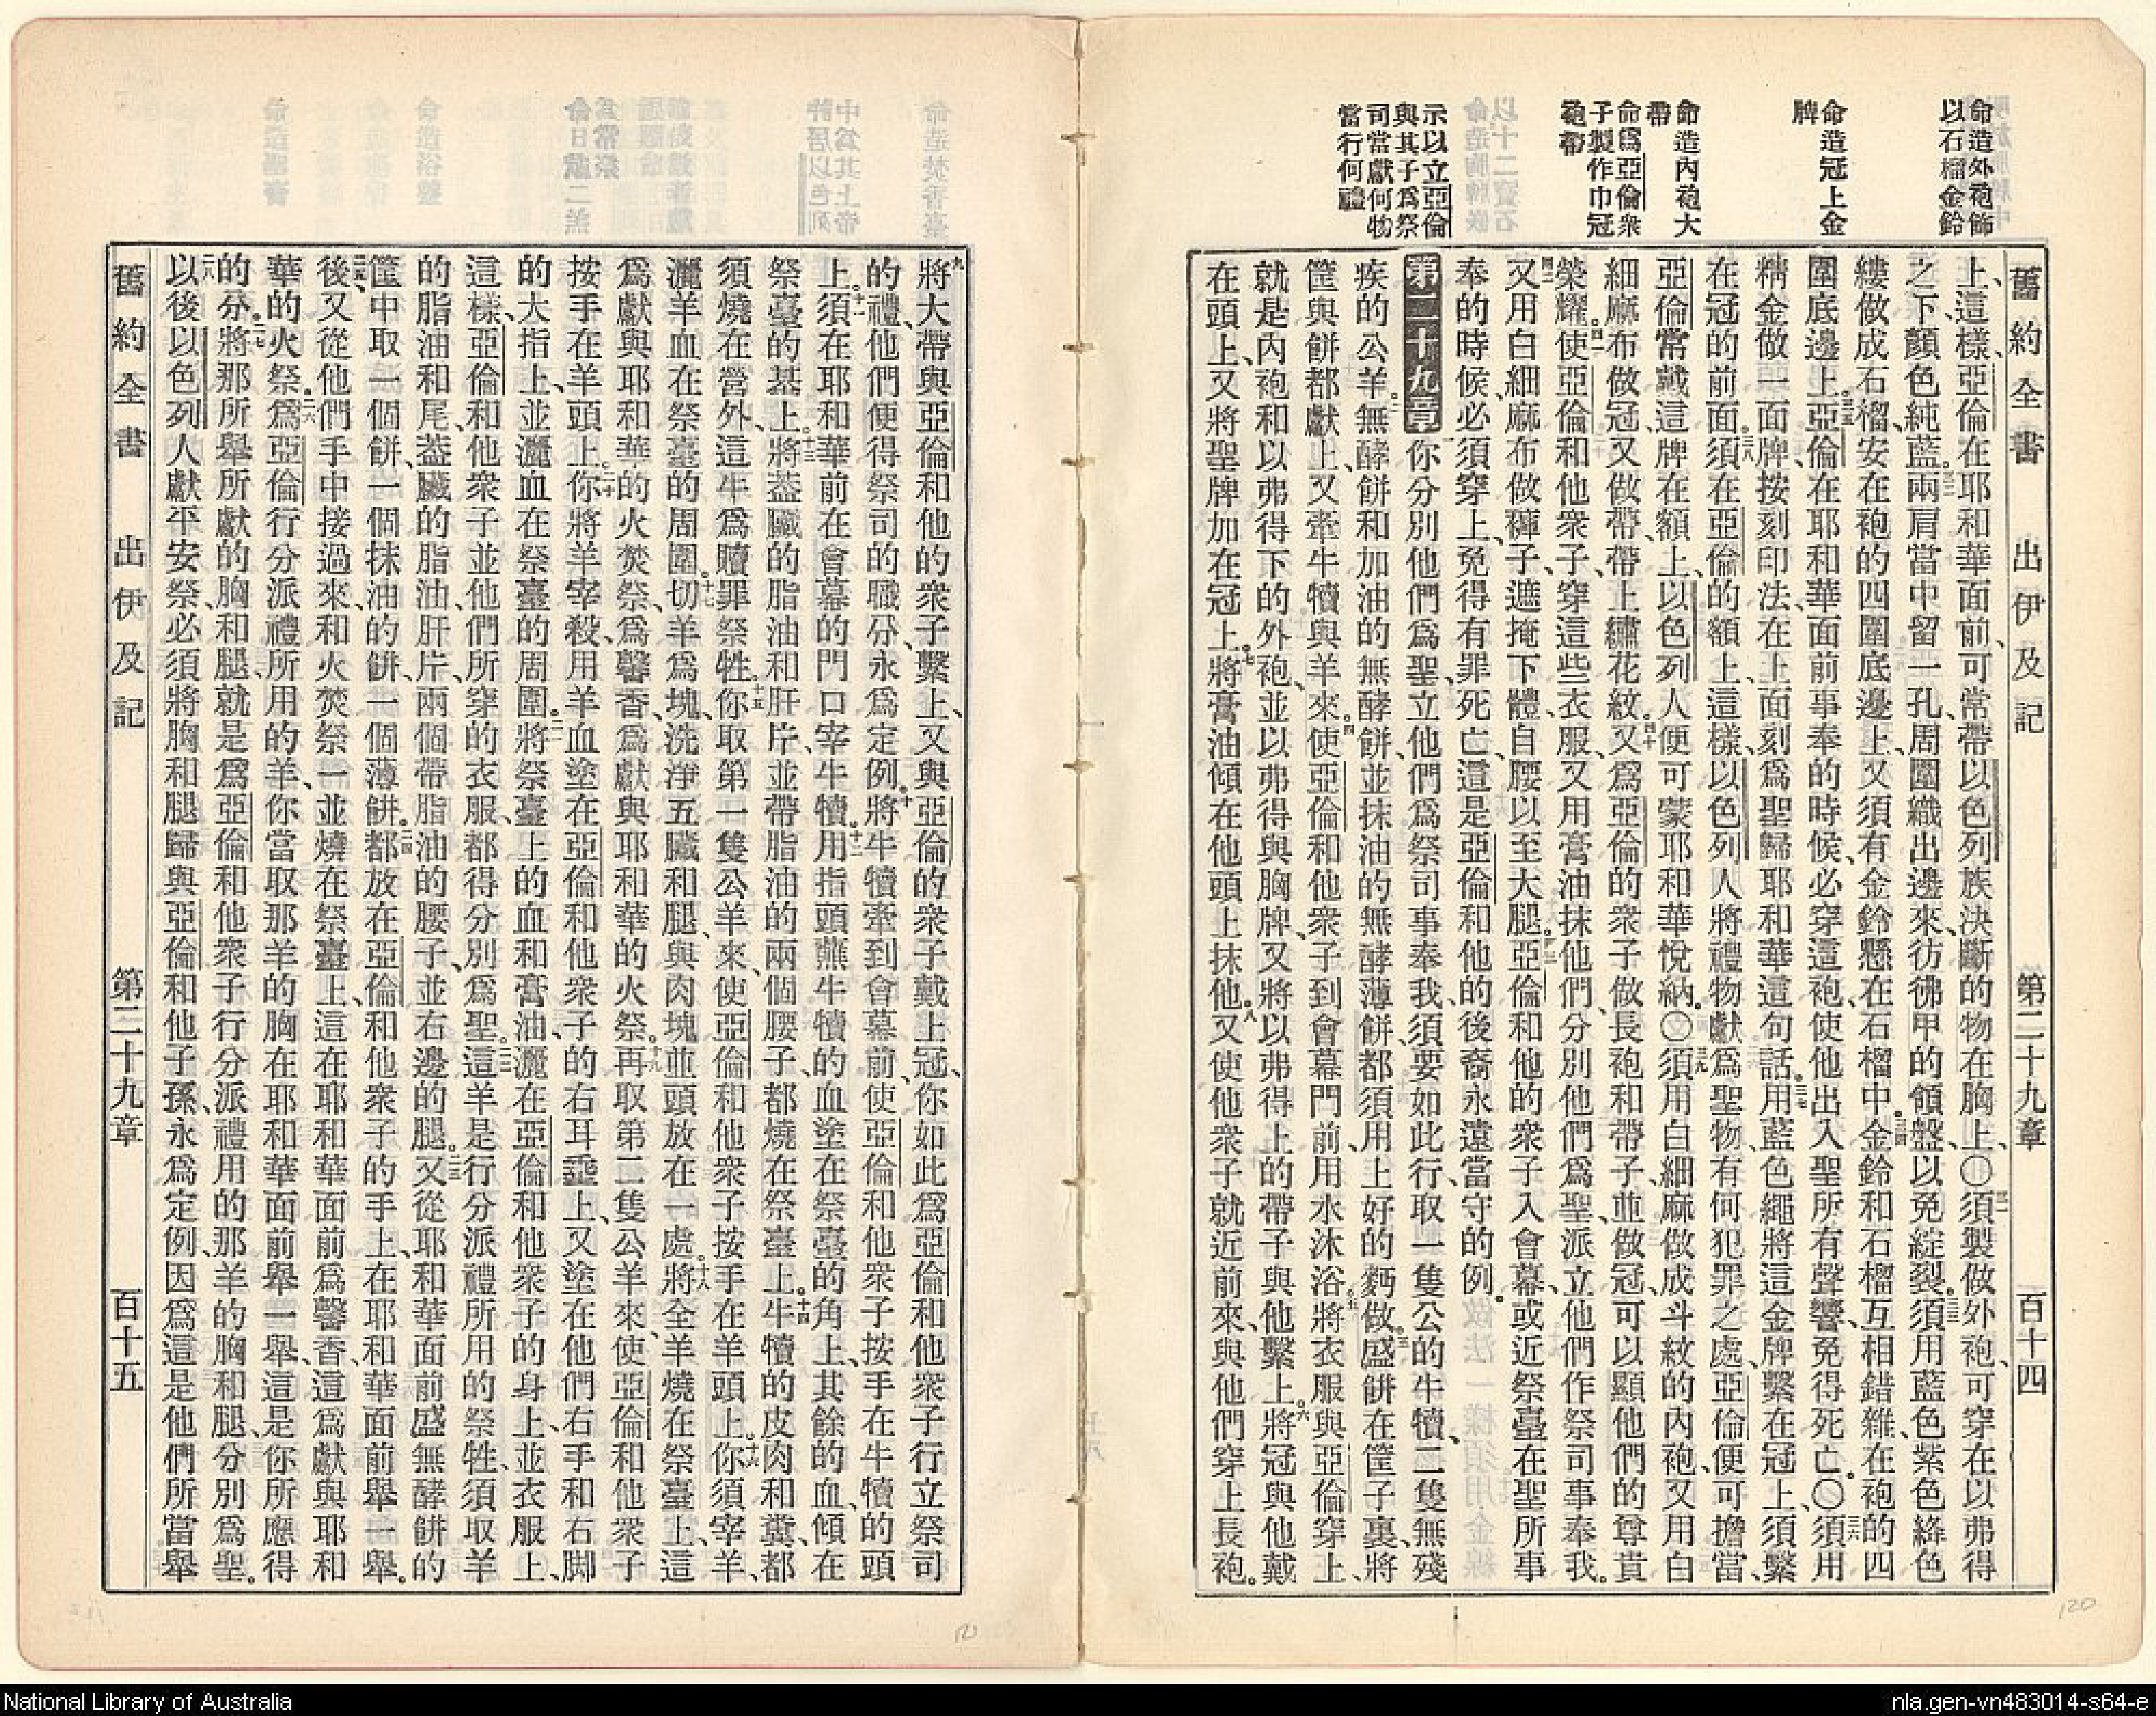 命造外袍飾
以石榴金鈴
命造冠上金
牌
命造內袍大
帶
命爲亞倫衆
子製作巾冠
袍帶
示以立亞倫
與其子爲祭
司當獻何物
當行何禮
舊約全書 出伊及記 第二十九章 百十四
上、這樣、亞倫在耶和華面前、可常帶以色列族決斷的物在胸上、〇三一須製做外袍、可穿在以弗得
之下、顏色純藍。三二兩肩當中留一孔、周圍織出邊來、彷彿甲的領盤、以免綻裂。三三須用藍色紫色絳色
縷做成石榴、安在袍的四圍底邊上、又須有金鈴懸在石榴中。三四金鈴和石榴互相錯雜、在袍的四
圍底邊上。三五亞倫在耶和華面前事奉的時候、必穿這袍、使他出入聖所有聲響、免得死亡。〇三六須用
精金做一面牌、按刻印法、在上面刻爲聖歸耶和華這句話。三七用藍色繩將這金牌繫在冠上、須繫
在冠的前面。三八須在亞倫的額上、這樣、以色列人將禮物獻爲聖物、有何犯罪之處、亞倫便可擔當、
亞倫常戴這牌在額上、以色列人便可蒙耶和華悅納。〇三九須用白細麻做成斗紋的內袍、又用白
細麻布做冠、又做帶、帶上繡花紋。四十又爲亞倫的衆子做長袍和帶子、並做冠、可以顯他們的尊貴
榮耀。四一使亞倫和他衆子、穿這些衣服、又用膏油抹他們、分別他們爲聖、派立他們作祭司事奉我。
四二又用白細麻布做褲子、遮掩下體、自腰以至大腿。四三亞倫和他的衆子入會幕、或近祭臺在聖所事
奉的時候、必須穿上、免得有罪死亡、這是亞倫和他的後裔永遠當守的例。
第二十九章 一你分別他們爲聖、立他們爲祭司事奉我、須要如此行、取一隻公的牛犢、二隻無殘
疾的公羊。二無酵餅和加油的無酵餅、並抹油的無酵薄餅、都須用上好的麪做。三盛餅在筐子裏、將
筐與餅都獻上、又牽牛犢與羊來。四使亞倫和他衆子到會幕門前、用水沐浴。五將衣服與亞倫穿上、
就是內袍和以弗得下的外袍、並以弗得與胸牌、又將以弗得上的帶子與他繫上。六將冠與他戴
在頭上、又將聖牌加在冠上。七將膏油傾在他頭上抹他。八又使他衆子就近前來、與他們穿上長袍。
九將大帶與亞倫和他的衆子、繫上、又與亞倫的衆子戴上冠、你如此爲亞倫和他衆子行立祭司
的禮、他們便得祭司的職分、永爲定例。十將牛犢牽到會幕前、使亞倫和他衆子按手在牛犢的頭
上。十一須在耶和華前在會幕的門口宰牛犢。十二用指頭蘸牛犢的血塗在祭臺的角上、其餘的血、傾在
祭臺的基上。十三將蓋臟的脂油和肝片、並帶脂油的兩個腰子、都燒在祭臺上。十四牛犢的皮肉和糞、都
須燒在營外、這牛爲贖罪祭牲。十五你取第一隻公羊來、使亞倫和他衆子按手在羊頭上。十六你須宰羊、
灑羊血在祭臺的周圍。十七切羊爲塊、洗淨五臟和腿、與肉塊並頭放在一處。十八將全羊燒在祭臺上、這
爲獻與耶和華的火焚祭、爲馨香、爲獻與耶和華的火祭。十九再取第二隻公羊來、使亞倫和他衆子
按手在羊頭上。二十你將羊宰殺、用羊血塗在亞倫和他衆子的右耳垂上、又塗在他們右手和右脚
的大指上、並灑血在祭臺的周圍。二一將祭臺上的血和膏油、灑在亞倫和他衆子的身上、並衣服上、
這樣、亞倫和他衆子並他們所穿的衣服、都得分別爲聖。二二這羊是行分派禮所用的祭牲、須取羊
的脂油和尾、蓋臟的脂油、肝片、兩個帶脂油的腰子、並右邊的腿。二三又從耶和華面前盛無酵餅的
筐中取一個餅、一個抹油的餅、一個薄餅。二四都放在亞倫和他衆子的手上、在耶和華面前舉一舉。
二五後又從他們手中接過來、和火焚祭一並燒在祭臺上、這在耶和華面前爲馨香、這爲獻與耶和
華的火祭。二六爲亞倫行分派禮所用的羊、你當取那羊的胸在耶和華面前舉一舉、這是你所應得
的分。二七將那所舉所獻的胸和腿、就是爲亞倫和他衆子行分派禮用的那羊的胸和腿、分別爲聖。
二八以後以色列人獻平安祭、必須將胸和腿歸與亞倫和他子孫、永爲定例、因爲這是他們所當舉
舊約全書 出伊及記 第二十九章 百十五
120
National Library of Australia
nla.gen-vn483014-s64-e